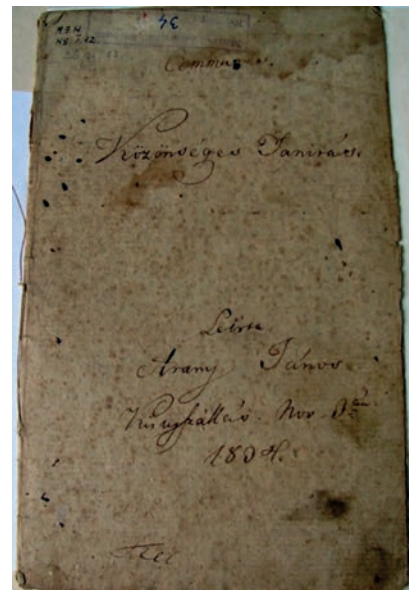 34
Communis.
Közönséges Tanitás.
Leírta
Arany János
Kisújszállás. Nov. 3án
1834.